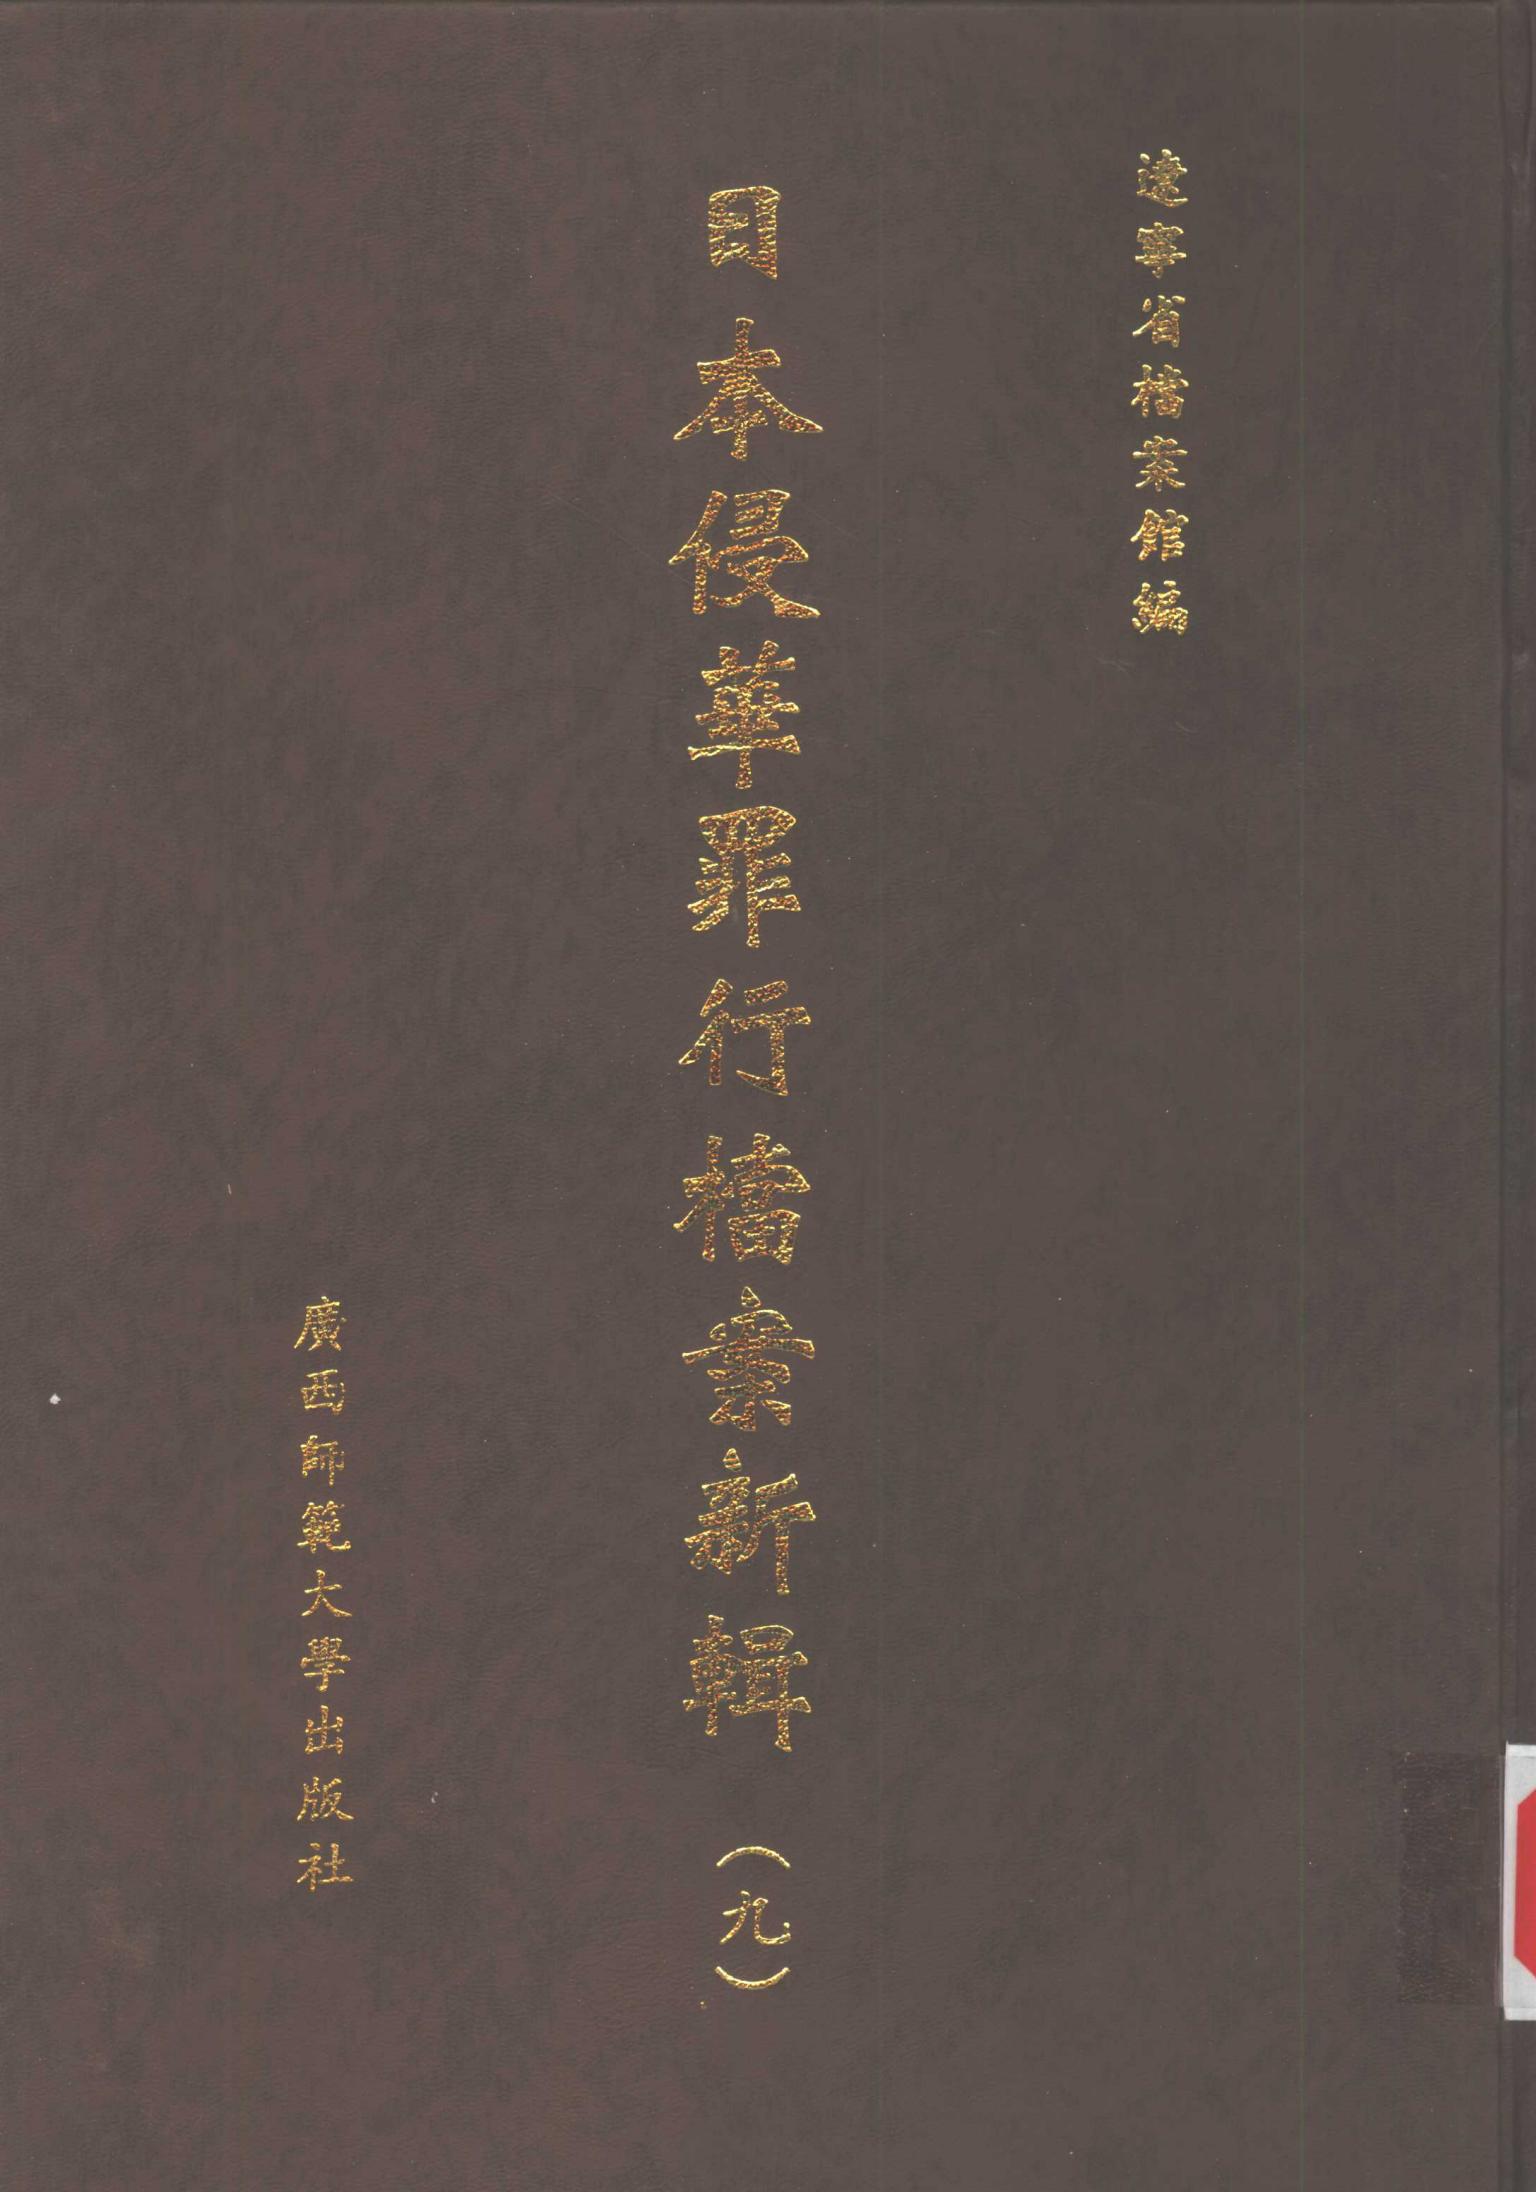 遼寧省檔案館編
日本侵華罪行檔案新輯（九）
廣西師範大學出版社